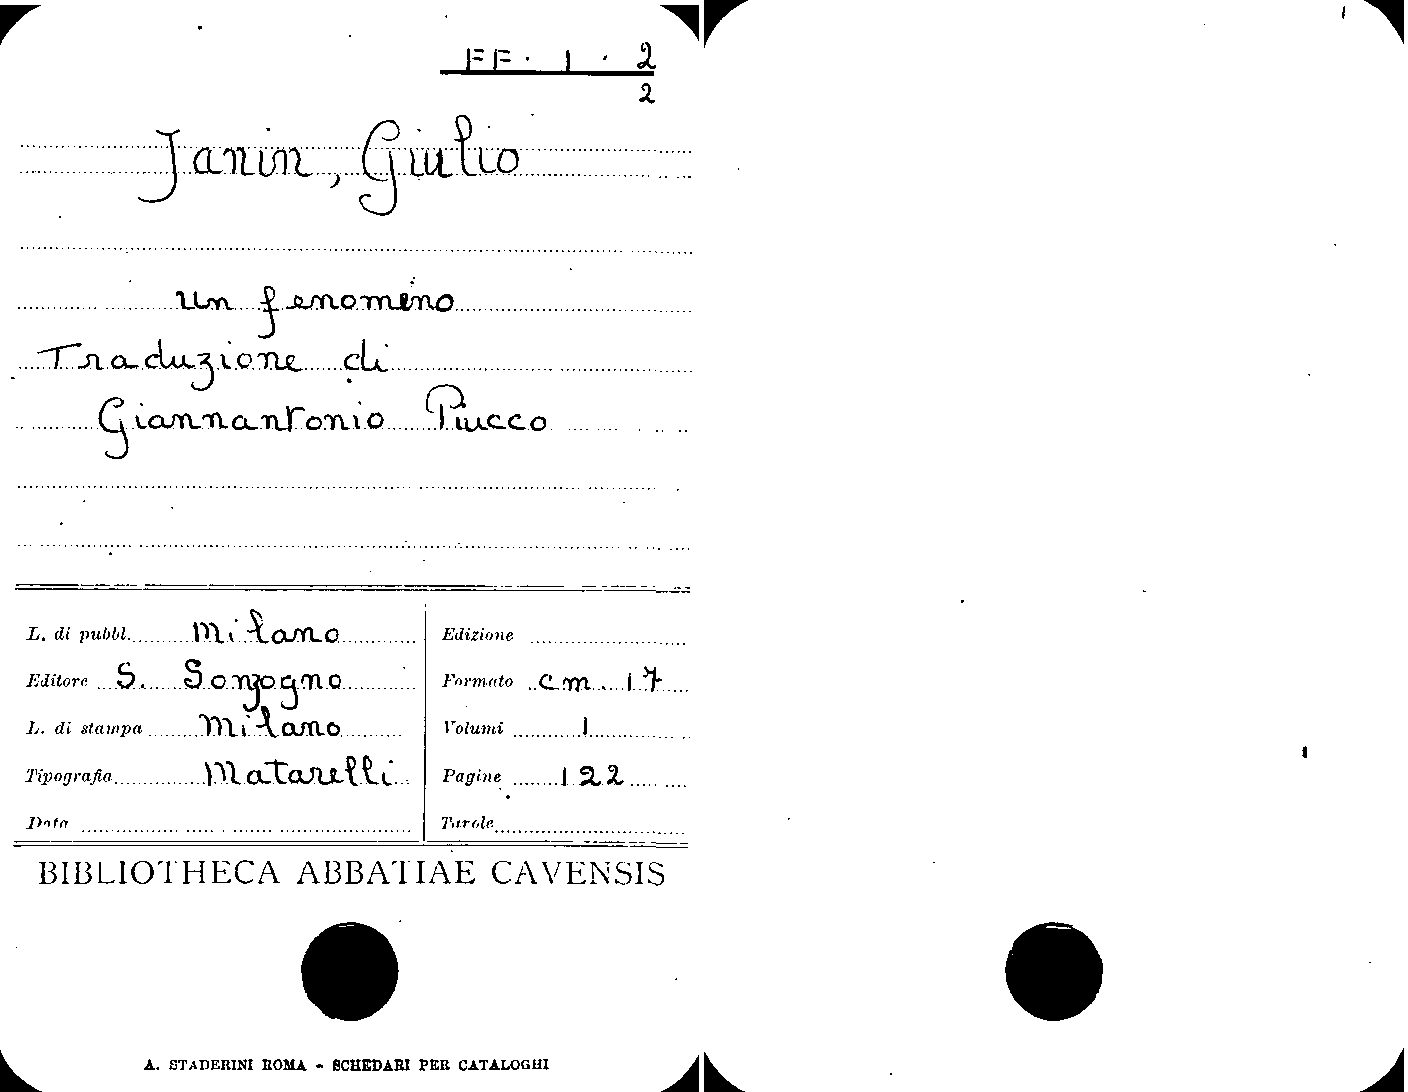 FF. 1. 2
2
Janin, Giulio
un fenomeno
Traduzione di
Giannantonio Piucco
L. di pubbl. Milano
Editore S. Sonzogno
L. di stampa Milano
Tipografia Matarelli
Data
Edizione
Formato cm. 17
Volumi 1
Pagine 122
Tavole
BIBLIOTHECA ABBATIAE CAVENSIS
A. STADERINI ROMA - SCHEDARI PER CATALOGHI